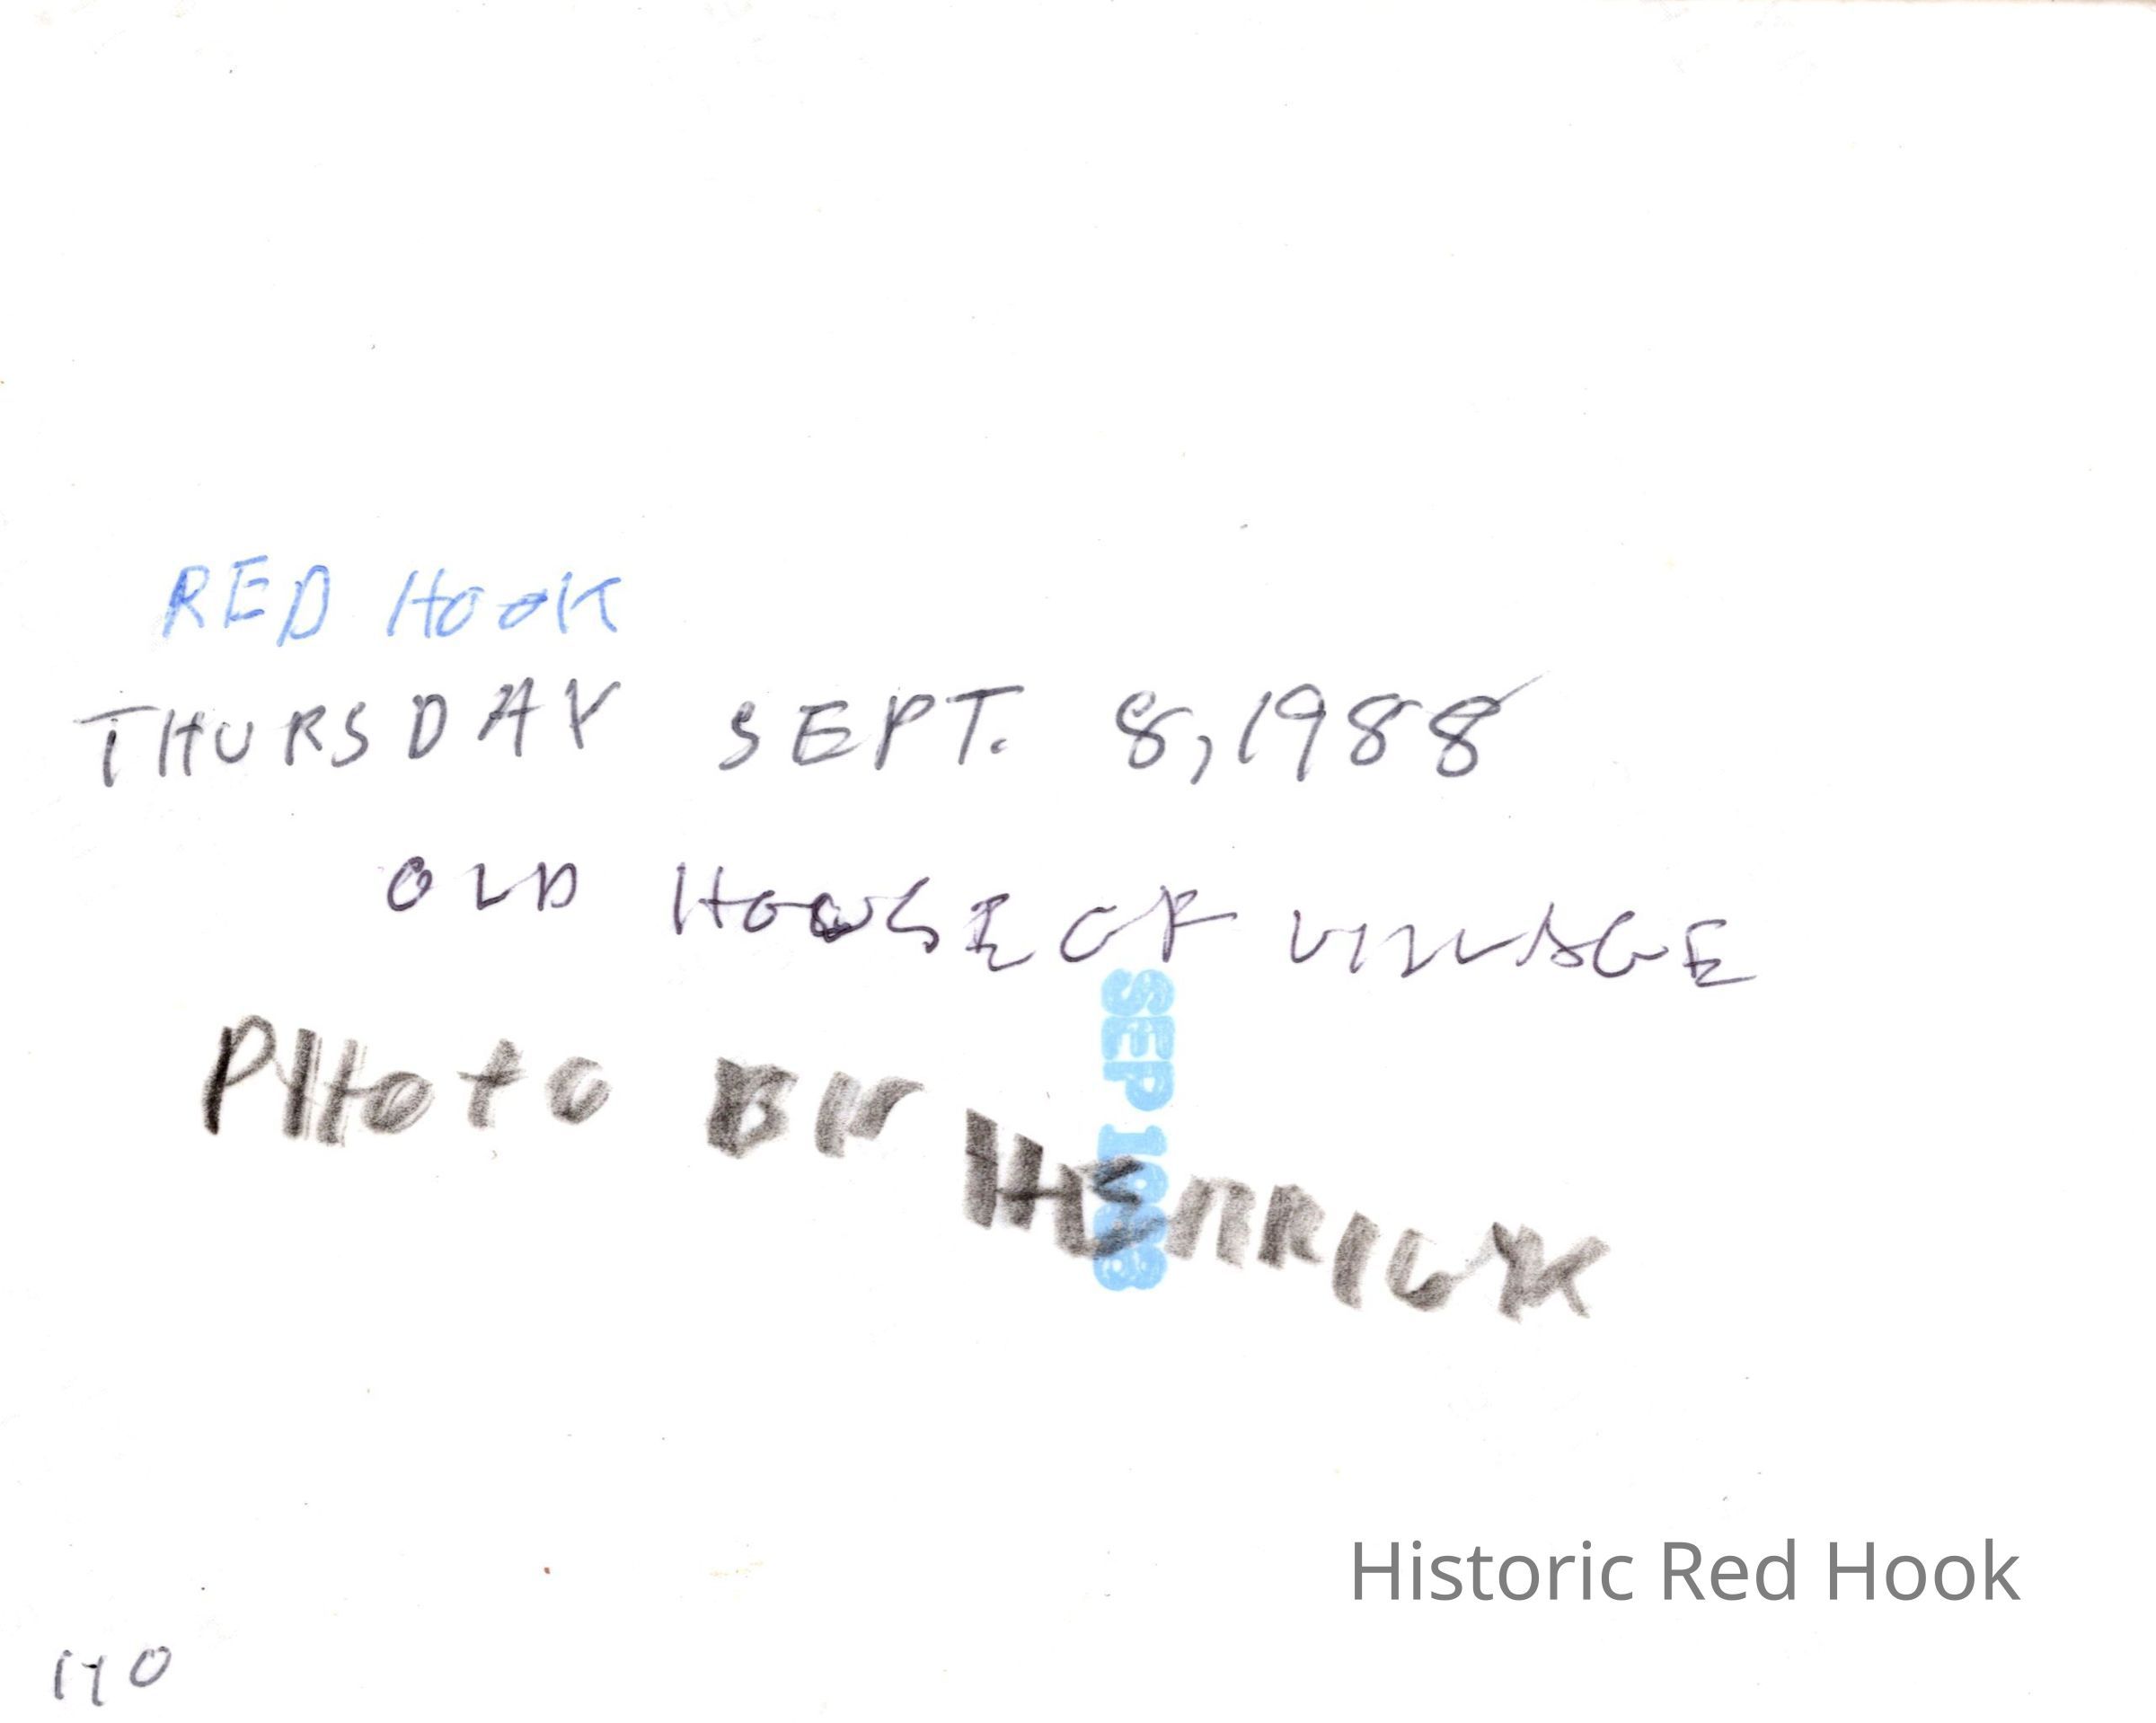 RED HOOK
THURSDAY SEPT. 8, 1988
OLD HOUSE OF VILLAGE
PHOTO BY HENRICK
SEP 1988
Historic Red Hook